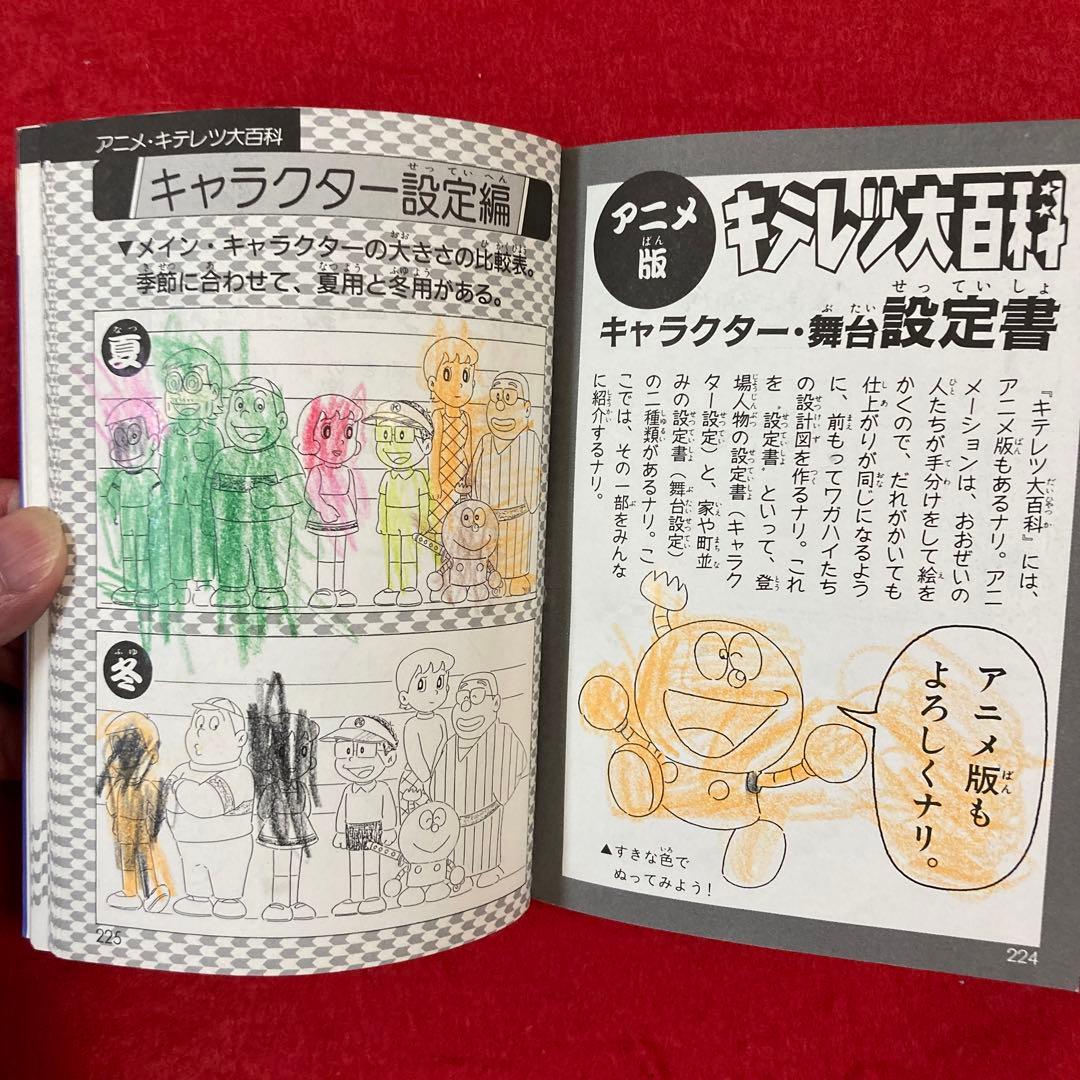 アニメ版
キテレツ大百科
キャラクター・舞台設定書
『キテレツ大百科』には、
アニメ版もあるナリ。アニ
メーションは、おおぜいの
人たちが手分けをして絵を
かくので、だれがかいても
仕上がりが同じになるよう
に、前もってワガハイたち
の設計図を作るナリ。これ
を〝設定書〟といって、登
場人物の設定書（キャラク
ター設定）と、家や町並
みの設定書（舞台設定）
の二種類があるナリ。こ
こでは、その一部をみんな
に紹介するナリ。
アニメ版も
よろしくナリ。
▲すきな色で
ぬってみよう！
224
アニメ・キテレツ大百科
キャラクター設定編
▼メイン・キャラクターの大きさの比較表。
季節に合わせて、夏用と冬用がある。
夏
冬
225